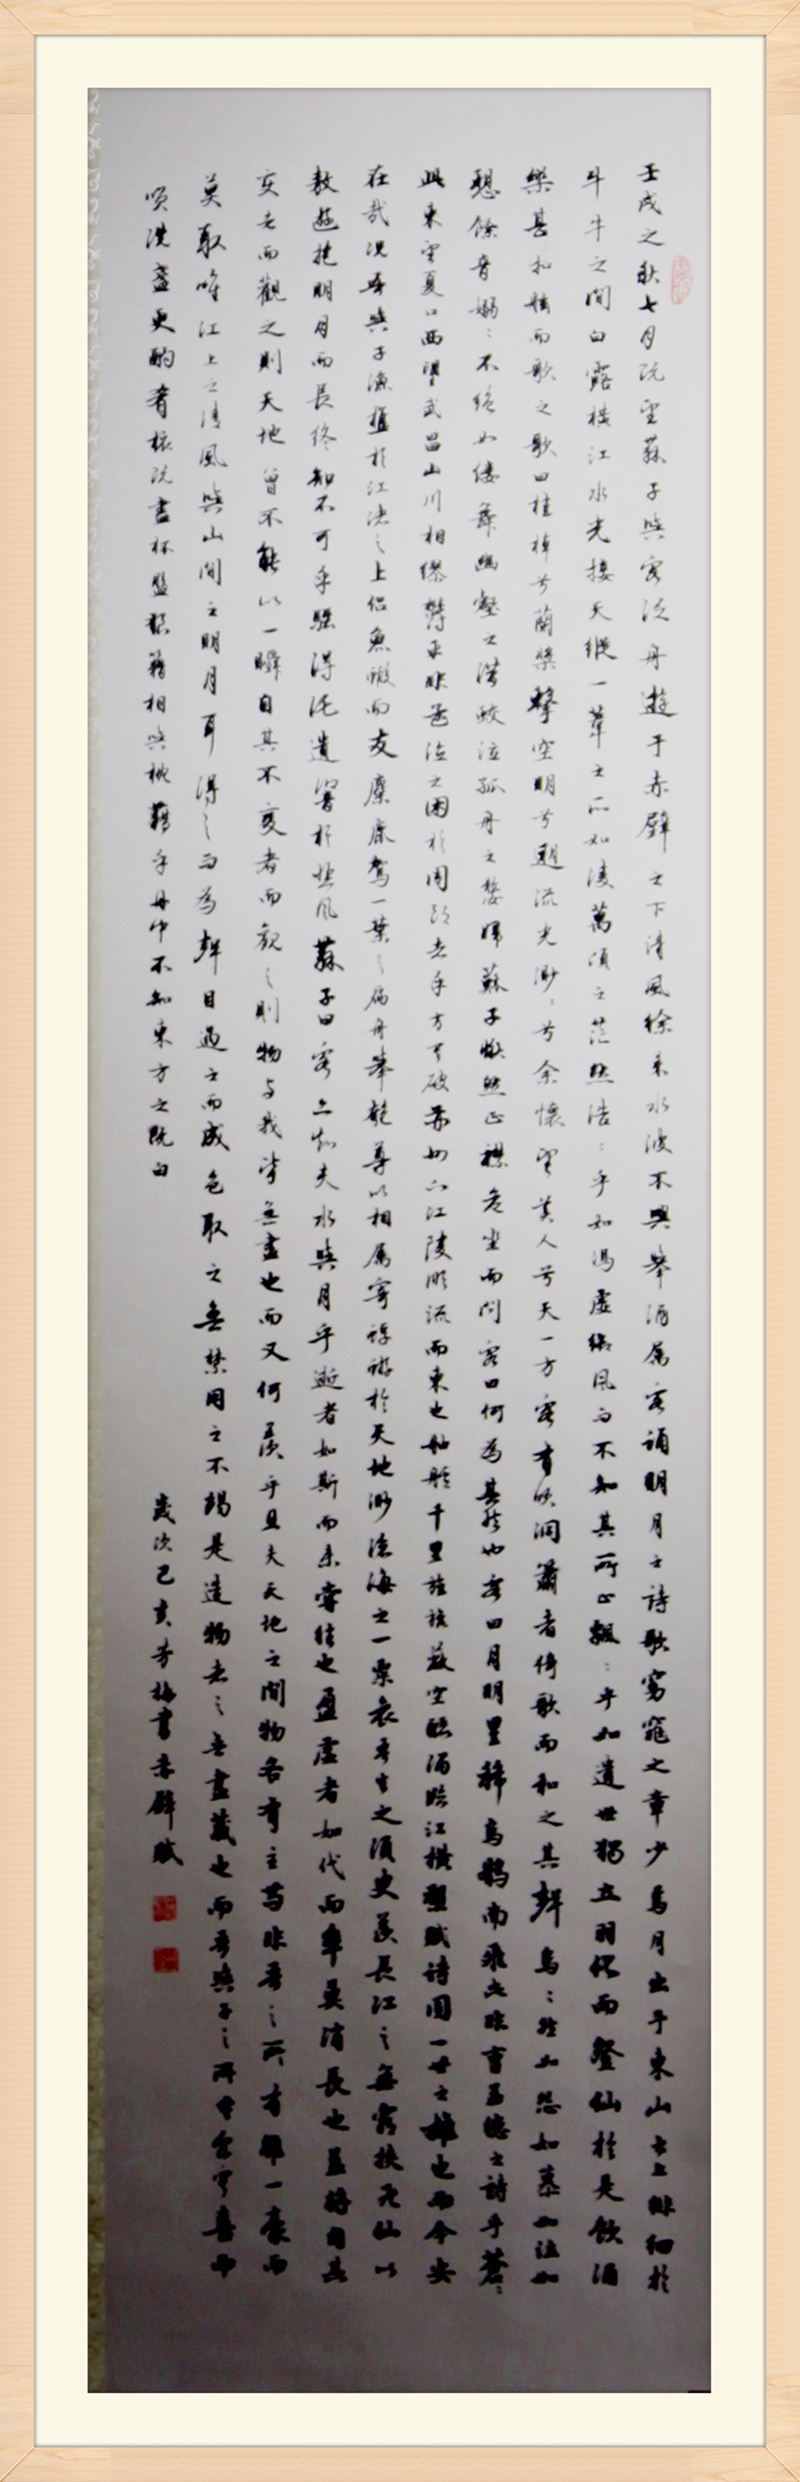 壬戌之秋七月既望蘇子與客泛舟遊于赤壁之下清風徐來水波不興舉酒属客誦明月之詩歌窈窕之章少焉月出于東山之上徘徊於
斗牛之間白露橫江水光接天縱一葦之所如凌萬頃之茫然浩〻乎如馮虛御風而不知其所止飄〻乎如遺世獨立羽化而登仙於是飲酒
樂甚扣舷而歌之歌曰桂棹兮蘭槳擊空明兮遡流光渺〻兮余懷望美人兮天一方客有吹洞簫者倚歌而和之其聲烏〻然如怨如慕如泣如
愬餘音嫋〻不絕如縷舞幽壑之潛蛟泣孤舟之嫠婦蘇子愀然正襟危坐而問客曰何為其然也客曰月明星稀烏鵲南飛此非曹孟德之詩乎蒼〻
此東望夏口西望武昌山川相繆鬱乎非孟德之困於周郎者乎方其破荊州下江陵順流而東也舳艫千里旌旗蔽空釃酒臨江橫槊賦詩固一世之雄也而今安
在哉況吾與子漁樵於江渚之上侶魚蝦而友麋鹿駕一葉之扁舟舉匏尊以相属寄蜉蝣於天地渺滄海之一粟哀吾生之須臾羨長江之無窮挾飛仙以
敖遊抱明月而長終知不可乎驟得託遺響於悲風蘇子曰客亦知夫水與月乎逝者如斯而未嘗往也盈虛者如代而卒莫消長也蓋將自其
變者而觀之則天地曾不能以一瞬自其不變者而觀之則物与我皆無盡也而又何羨乎且夫天地之間物各有主苟非吾之所有雖一毫而
莫取唯江上之清風與山間之明月耳得之而為聲目遇之而成色取之無禁用之不竭是造物者之無盡藏也而吾與子之所共食客喜而
笑洗盞更酌肴核既盡杯盤狼籍相與枕藉乎舟中不知東方之既白
歲次己亥芳梅書赤壁賦